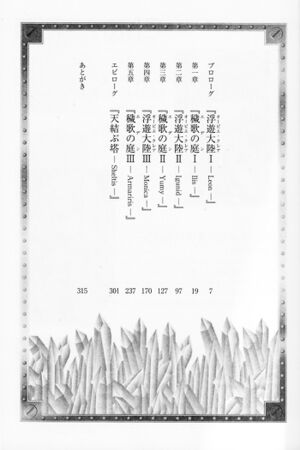 プロローグ 『浮遊大陸Ⅰ ―Leon―』 7
第一章 『穢歌の庭Ⅰ ―Ilis―』 19
第二章 『浮遊大陸Ⅱ ―Igunid―』 97
第三章 『穢歌の庭Ⅱ ―Yumy―』 127
第四章 『浮遊大陸Ⅲ ―Monica―』 170
第五章 『穢歌の庭Ⅲ ―Armariris―』 237
エピローグ 『天結ぶ塔 ―Sheltis―』 301
あとがき 315